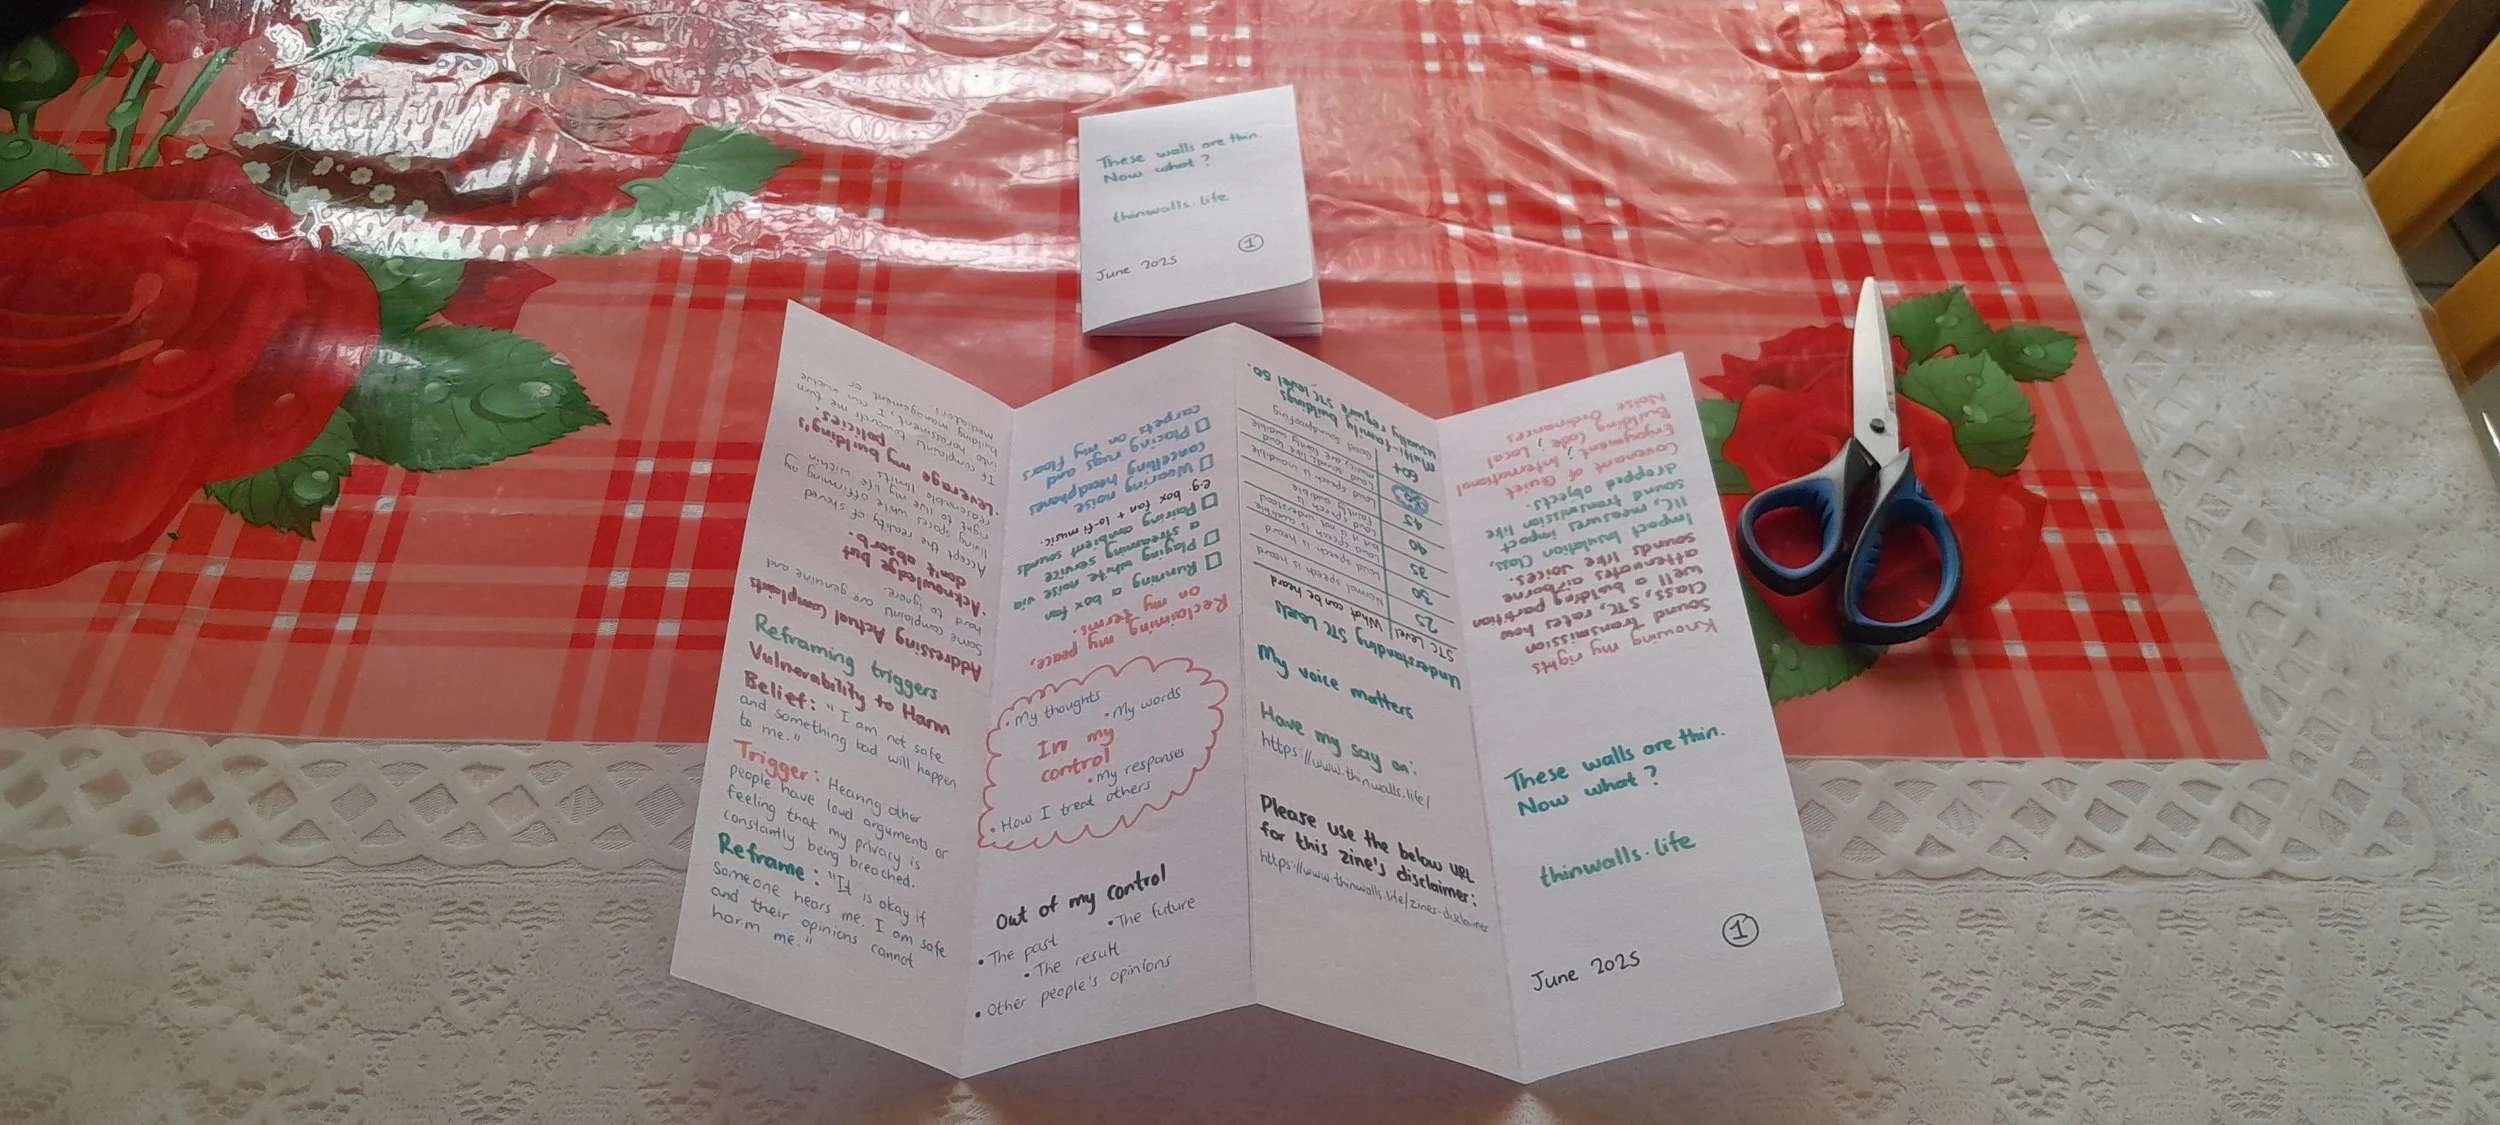 These walls are thin.
Now what?
thinwalls.life
June 2025
1
Reframing triggers
Vulnerability to Harm
Belief: "I am not safe
and something bad will happen
to me."
Trigger: Hearing other
people have loud arguments or
feeling that my privacy is
constantly being breached.
Reframe: "It is okay if
someone hears me. I am safe
and their opinions cannot
harm me."
• My thoughts
• My words
In my
control
• My responses
• How I treat others
Out of my control
• The past
• The future
• The result
• Other people's opinions
My voice matters
Have my say on:
https://www.thinwalls.life/
Please use the below URL
for this zine's disclaimer:
https://www.thinwalls.life/zines-disclaimer
These walls are thin.
Now what?
thinwalls.life
June 2025
1
Knowing my rights
Sound Transmission
Class, STC, rates how
well a building partition
attenuates airborne
sounds like voices.
Impact Insulation Class,
IIC, measures impact
sound transmission like
dropped objects.
Covenant of Quiet
Enjoyment; International
Building Code; Local
Noise Ordinances
Understanding STC Levels
STC Level What can be heard
25 Normal speech is heard
30 Loud speech is heard
35 Loud speech is audible
but not understood
40 Loud speech is
faintly audible
45 Loud speech is inaudible
50 Loud sounds like
music are faintly audible
60+ Good soundproofing
Multi-family buildings
usually require STC level 50.
Reclaiming my peace,
on my terms.
Running a box fan
Playing white noise via
a streaming service
Pairing ambient sounds
e.g. box fan + lo-fi music.
Wearing noise
cancelling headphones
Placing rugs and
carpets on my floors
Addressing Actual Complaints
Some complaints are genuine and
hard to ignore.
• Acknowledge but
don't absorb.
Accept the reality of shared
living spaces while affirming my
right to live my life within
reasonable limits.
• Leverage my building's
policies.
If complaints towards me turn
into harassment, I can involve
building management or
mediators.